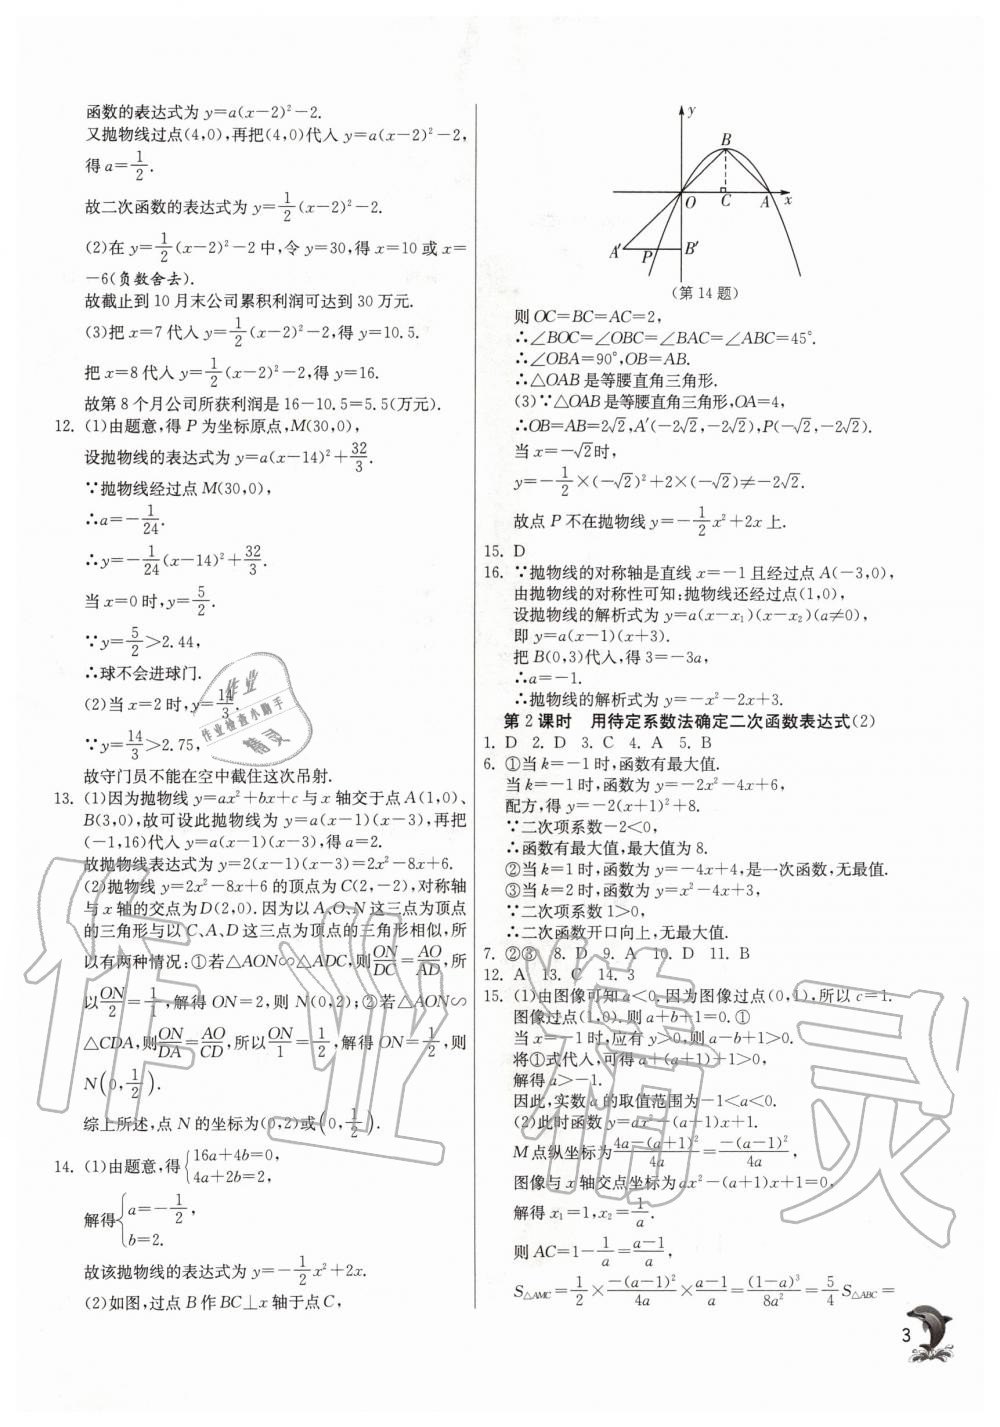 函数的表达式为 y=a(x-2)²-2.
又抛物线过点(4,0),再把(4,0)代入 y=a(x-2)²-2,
得 a=1/2.
故二次函数的表达式为 y=1/2(x-2)²-2.
(2)在 y=1/2(x-2)²-2 中,令 y=30,得 x=10 或 x=
-6(负数舍去).
故截止到 10 月末公司累积利润可达到 30 万元.
(3)把 x=7 代入 y=1/2(x-2)²-2,得 y=10.5.
把 x=8 代入 y=1/2(x-2)²-2,得 y=16.
故第 8 个月公司所获利润是 16-10.5=5.5(万元).
12. (1)由题意,得 P 为坐标原点,M(30,0),
设抛物线的表达式为 y=a(x-14)²+32/3.
∵抛物线经过点 M(30,0),
∴a=-1/24.
∴y=-1/24(x-14)²+32/3.
当 x=0 时,y=5/2.
∵y=5/2>2.44,
∴球不会进球门.
(2)当 x=2 时,y=14/3,
∵y=14/3>2.75,
故守门员不能在空中截住这次吊射.
13. (1)因为抛物线 y=ax²+bx+c 与 x 轴交于点 A(1,0)、
B(3,0),故可设此抛物线为 y=a(x-1)(x-3),再把
(-1,16)代入 y=a(x-1)(x-3),得 a=2.
故抛物线表达式为 y=2(x-1)(x-3)=2x²-8x+6.
(2)抛物线 y=2x²-8x+6 的顶点为 C(2,-2),对称轴
与 x 轴的交点为 D(2,0). 因为以 A、O、N 这三点为顶点
的三角形与以 C、A、D 这三点为顶点的三角形相似,所
以有两种情况:①若△AON∽△ADC,则ON/DC=AO/AD,所
以ON/2=1/1,解得 ON=2,则 N(0,2);②若△AON∽
△CDA,则ON/DA=AO/CD,所以ON/1=1/2,解得 ON=1/2,则
N(0,1/2).
综上所述,点 N 的坐标为(0,2)或(0,1/2).
14. (1)由题意,得{16a+4b=0,
4a+2b=2,
解得{a=-1/2,
b=2.
故该抛物线的表达式为 y=-1/2x²+2x.
(2)如图,过点 B 作 BC⊥x 轴于点 C,
y
B
O C A x
A′ P B′
(第 14 题)
则 OC=BC=AC=2,
∴∠BOC=∠OBC=∠BAC=∠ABC=45°.
∴∠OBA=90°,OB=AB.
∴△OAB 是等腰直角三角形.
(3)∵△OAB 是等腰直角三角形,OA=4,
∴OB=AB=2√2,A′(-2√2,-2√2),P(-√2,-2√2).
当 x=-√2时,
y=-1/2×(-√2)²+2×(-√2)≠-2√2.
故点 P 不在抛物线 y=-1/2x²+2x 上.
15. D
16. ∵抛物线的对称轴是直线 x=-1 且经过点 A(-3,0),
由抛物线的对称性可知:抛物线还经过点(1,0),
设抛物线的解析式为 y=a(x-x₁)(x-x₂)(a≠0),
即 y=a(x-1)(x+3).
把 B(0,3)代入,得 3=-3a,
∴a=-1.
∴抛物线的解析式为 y=-x²-2x+3.
第 2 课时 用待定系数法确定二次函数表达式(2)
1. D 2. D 3. C 4. A 5. B
6. ①当 k=-1 时,函数有最大值.
当 k=-1 时,函数为 y=-2x²-4x+6,
配方,得 y=-2(x+1)²+8.
∵二次项系数-2<0,
∴函数有最大值,最大值为 8.
②当 k=1 时,函数为 y=-4x+4,是一次函数,无最值.
③当 k=2 时,函数为 y=x²-4x+3,
∵二次项系数 1>0,
∴二次函数开口向上,无最大值.
7. ②③ 8. D 9. A 10. D 11. B
12. A 13. C 14. 3
15. (1)由图像可知 a<0. 因为图像过点(0,1),所以 c=1.
图像过点(1,0),则 a+b+1=0. ①
当 x=-1 时,应有 y>0,则 a-b+1>0.
将①式代入,可得 a+(a+1)+1>0,
解得 a>-1.
因此,实数 a 的取值范围为-1<a<0.
(2)此时函数 y=ax²-(a+1)x+1.
M 点纵坐标为4a-(a+1)²/4a=-(a-1)²/4a,
图像与 x 轴交点坐标为 ax²-(a+1)x+1=0,
解得 x₁=1,x₂=1/a.
则 AC=1-1/a=a-1/a,
S△AMC=1/2×-(a-1)²/4a×a-1/a=(1-a)³/8a²=5/4 S△ABC=
3
作业
作业检查小助手
精灵
作业精灵